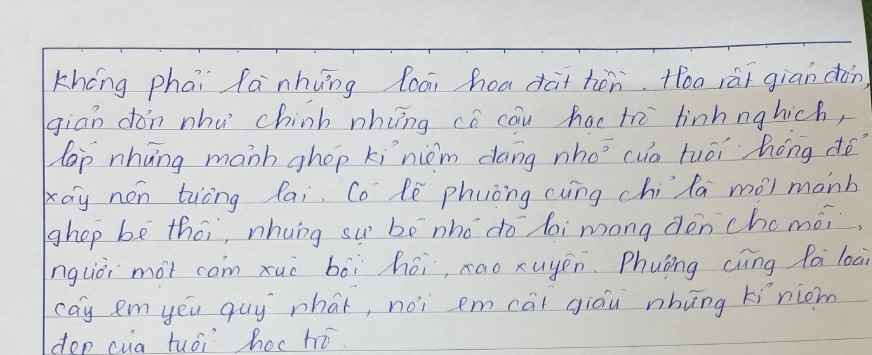 không phải là những loài hoa đắt tiền. Hoa rất giản đơn,
giản đơn như chính những cô cậu học trò tinh nghịch,
lắp những mảnh ghép kỉ niệm đáng nhớ của tuổi hồng để
xây nên tương lai. Có lẽ phượng cũng chỉ là một mảnh
ghép bé thôi, nhưng sự bé nhỏ đó lại mang đến cho mỗi
người một cảm xúc bồi hồi, xao xuyến. Phượng cũng là loài
cây em yêu quý nhất, nơi em cất giấu những kỉ niệm
đẹp của tuổi học trò.